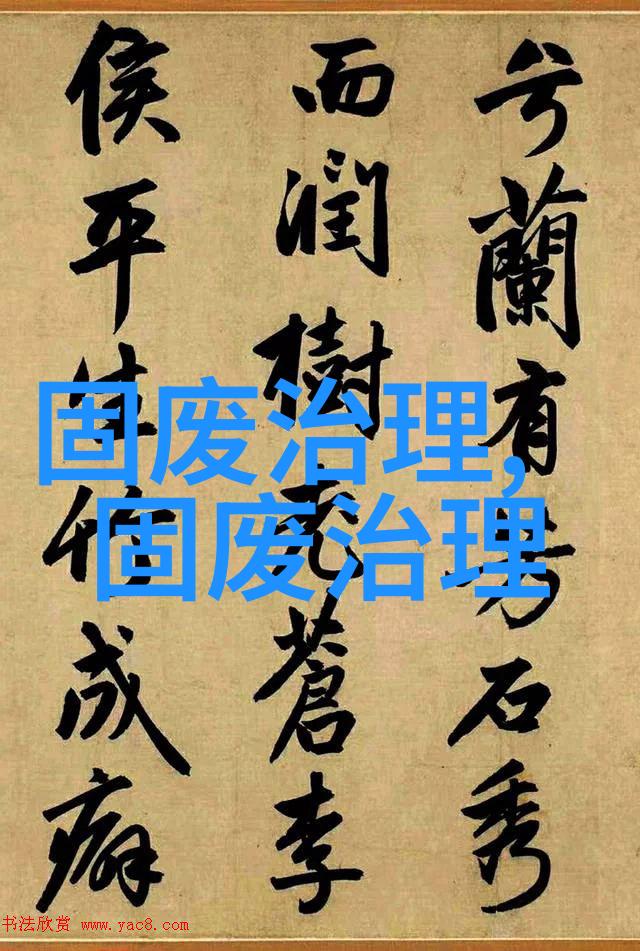 兮蘭有芳石秀
而潤樹蒼李
侯平生竹成癖
固废治理,
固废治理
书法欣赏 www.yac8.com